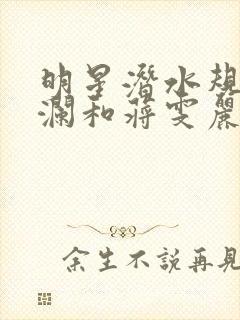 明星潛水規
瀾和蔣雯麗
余生不說再見